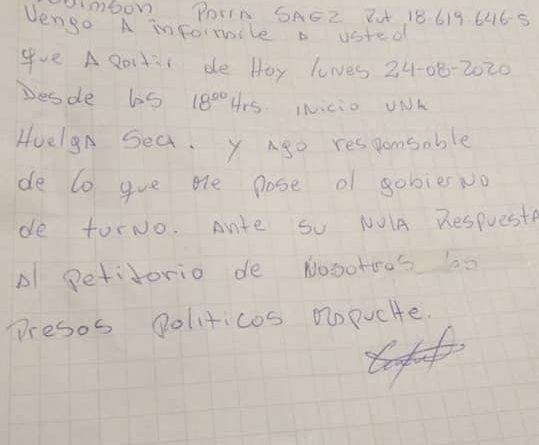 Parra SAEZ Rut 18.619.646-5
Vengo A informarle A usted
que A partir de Hoy lunes 24-08-2020
Desde las 18⁰⁰ Hrs. iNicio UNA
HuelgA Seca. y Ago responsable
de lo que me pase al gobierNo
de turNo. Ante su NulA RespuestA
Al petitorio de Nosotros los
Presos politicos mapucHe.